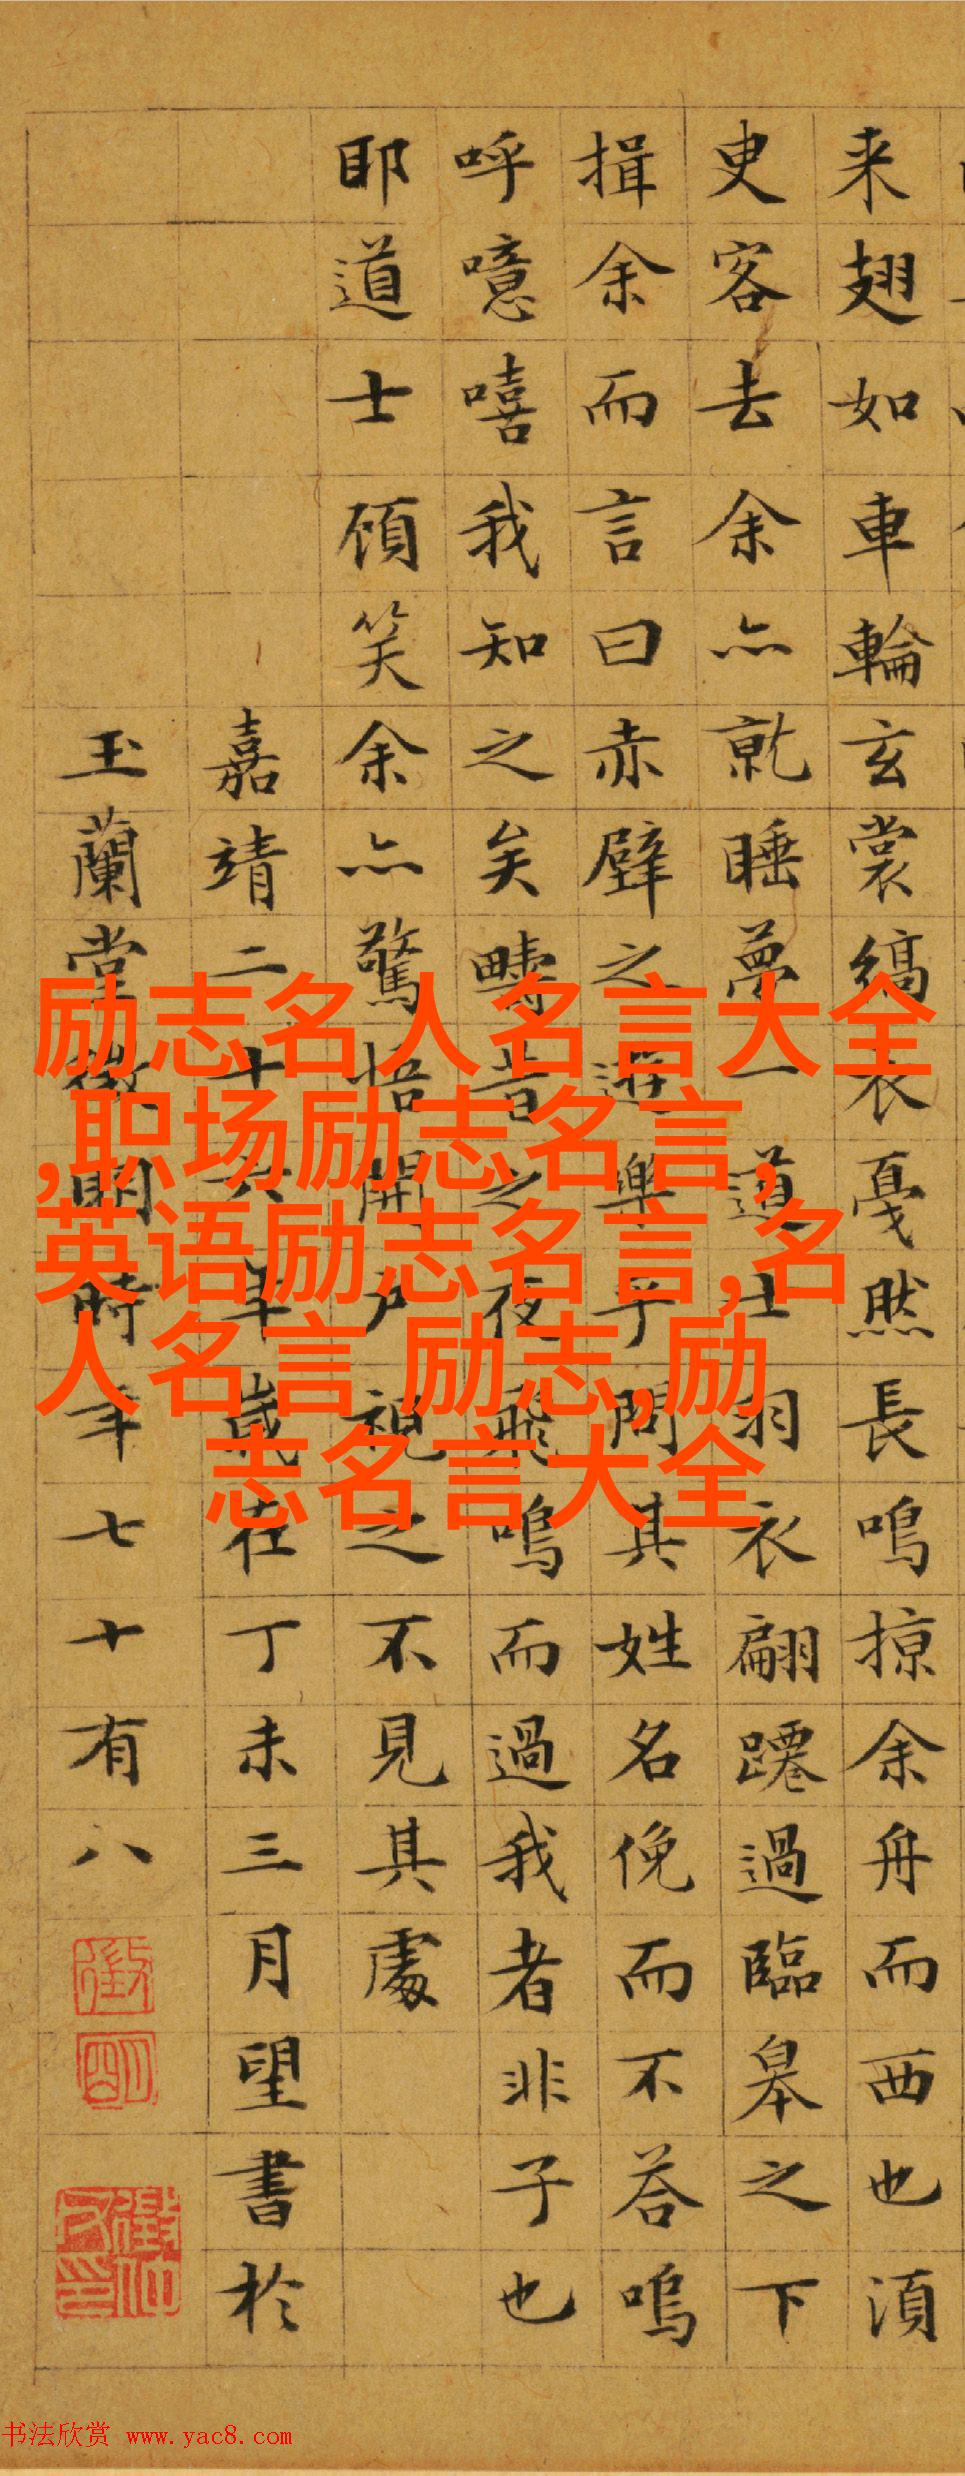 来翅如車輪玄裳縞衣戛然長鳴掠余舟而西也湏
吏客去余亦就睡夢一道士羽衣翩躚過臨皋之下
揖余而言曰赤壁之遊樂乎問其姓名俛而不荅嗚
呼噫嘻我知之矣疇昔之夜飛鳴而過我者非子也
耶道士頋笑余亦驚悟開户視之不見其處
嘉靖二十六年歲在丁未三月望書於
玉蘭堂徵明時年七十有八
励志名人名言大全
,职场励志名言,
英语励志名言,名
人名言 励志,励
志名言大全
书法欣赏 www.yac8.com